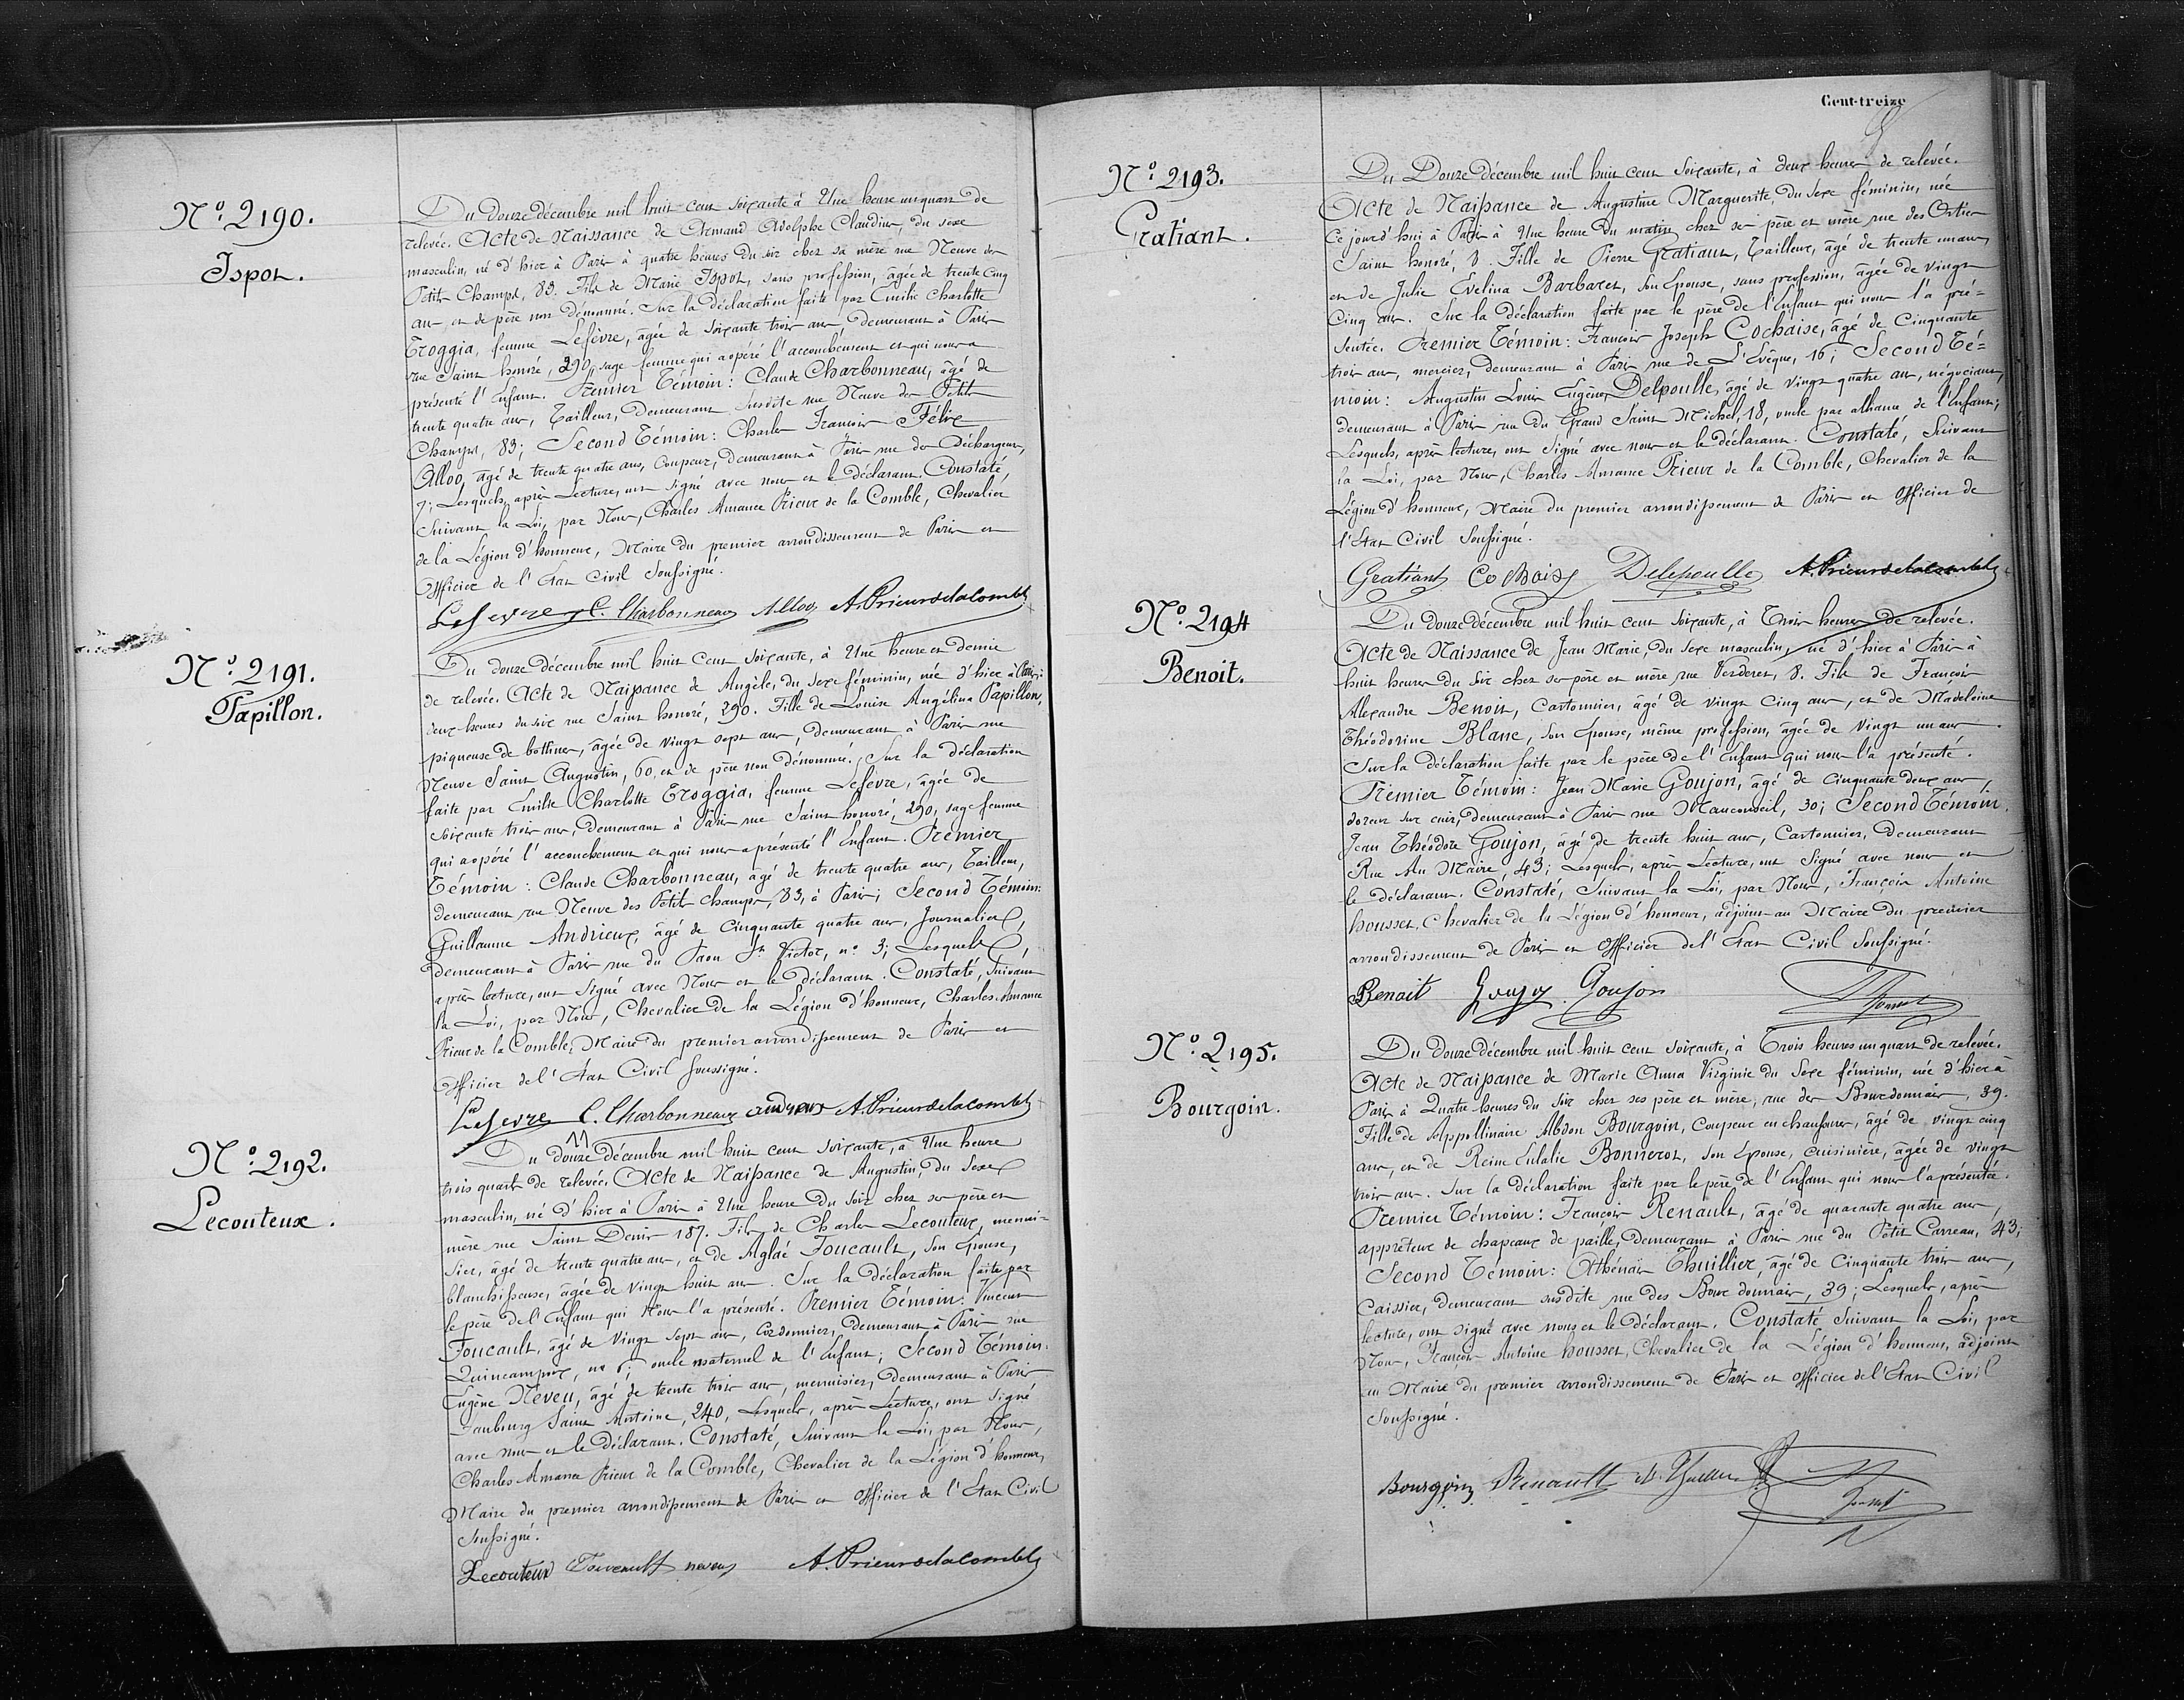 Nº 2190.
Ispot.
Du Douze décembre mil huit cent soixante à Une heure un quart de
relevée. Acte de Naissance de Armand Adolphe Claudius, du sexe
masculin, né d'hier à Paris à quatre heures du soir chez sa mère rue Neuve des
Petits Champs, 83. Fils de Marie Ispot, sans profession, âgée de trente cinq
ans et de père non dénommé. Sur la déclaration faite par Emilie Charlotte
Troggia, femme Lefèvre, âgée de soixante trois ans, demeurant à Paris
rue Saint honoré, 290, sage-femme qui a opéré l'accouchement et qui nous a
présenté l'Enfant. Premier Témoin: Claude Charbonneau, âgé de
trente quatre ans, Tailleur, Demeurant susdite rue Neuve des Petits
Champs, 83; Second Témoin: Charles François Félix
Alloo, âgé de trente quatre ans, Coupeur, Demeurant à Paris rue des Déchargeurs,
7; Lesquels, après Lecture, ont signé avec nous et le Déclarant. Constaté,
Suivant la Loi, par Nous, Charles Amance Prieur de la Comble, Chevalier
de la Légion d'honneur, Maire du premier arrondissement de Paris et
Officier de l'Etat Civil Soussigné.
Lefevre C. Charbonneau Alloo A. Prieurdelacomble
Nº 2191.
Papillon.
Du douze décembre mil huit Cent Soixante, à Une heure et demie
de relevée. Acte de Naissance de Angèle, du sexe féminin, née d'hier à Paris à
deux heures du soir rue Saint honoré, 290. Fille de Louise Angélina Papillon,
piqueuse de bottines, âgée de vingt sept ans, demeurant à Paris rue
Neuve Saint Augustin, 60, et de père non dénommé. Sur la déclaration
faite par Emilie Charlotte Troggia, femme Lefèvre, âgée de
soixante trois ans, demeurant à Paris rue Saint honoré, 290, sage femme
qui a opéré l'accouchement et qui nous a présenté l'Enfant. Premier
Témoin: Claude Charbonneau, âgé de trente quatre ans, Tailleur,
demeurant rue Neuve des Petits champs, 83, à Paris; Second Témoin:
Guillaume Andrieux, âgé de Cinquante quatre ans, Journalier,
demeurant à Paris rue du Paon St Victor, nº 3; Lesquels,
après lecture, ont signé avec Nous et le Déclarant. Constaté, Suivant
la Loi, par Nous, Chevalier de la Légion d'honneur, Charles Amance
Prieur de la Comble, Maire du premier arrondissement de Paris et
Officier de l'Etat Civil Soussigné.
Lefevre C. Charbonneau andrieux A. Prieurdelacomble
Nº 2192.
Lecouteux.
Du douze décembre mil huit cent soixante, à Une heure
trois quarts de relevée. Acte de Naissance de Augustin, du Sexe
masculin, né d'hier à Paris à Une heure du soir chez ses père et
mère rue Saint Denis 187. Fils de Charles Lecouteux, menui-
sier, âgé de trente quatre ans, et de Aglaé Foucault, son Epouse,
blanchisseuse, âgée de vingt huit ans. Sur la déclaration faite par
le père de l'Enfant qui Nous l'a présenté. Premier Témoin: Vincent
Foucault, âgé de vingt sept ans, Cordonnier, demeurant à Paris rue
Quincampoix, nº 6; oncle maternel de l'Enfant; Second Témoin:
Eugène Néveu, âgé de trente trois ans, menuisier, demeurant à Paris
Faubourg Saint Antoine, 240, Lesquels, après Lecture, ont signé
avec nous et le Déclarant. Constaté, Suivant la Loi, par Nous,
Charles Amance Prieur de la Comble, Chevalier de la Légion d'honneur,
Maire du premier arrondissement de Paris et Officier de l'Etat Civil
Soussigné.
Lecouteux Foucault neveu A. Prieurdelacomble
Cent-treize
Nº 2193.
Gratiant.
Du Douze décembre mil huit cent Soixante, à deux heures de relevée.
Acte de Naissance de Augustine Marguerite, du Sexe féminin, née
Ce jourd'hui à Paris à Une heure du matin chez ses père et mère rue des Orties
Saint honoré, 8. Fille de Pierre Gratiant, Tailleur, âgé de trente un ans,
et de Julie Evelina Barbaret, son Epouse, sans profession, âgée de vingt
Cinq ans. Sur la Déclaration faite par le père de l'Enfant qui nous l'a pré=
sentée. Premier Témoin: François Joseph Cochaise, âgé de Cinquante
trois ans, mercier, demeurant à Paris rue de L'Evêque, 16; Second Té=
moin: Augustin Louis Eugène Delpoulle, âgé de vingt quatre ans, négociant,
demeurant à Paris rue du Grand Saint Michel, 18, oncle par alliance de l'Enfant;
Lesquels, après lecture, ont signé avec nous et le déclarant. Constaté, Suivant
la Loi, par Nous, Charles Amance Prieur de la Comble, Chevalier de la
Légion d'honneur, Maire du premier arrondissement de Paris et Officier de
l'Etat Civil Soussigné.
Gratiant A. Prieurdelacomble
Nº 2194
Benoit.
Du douze décembre mil huit cent soixante, à Trois heures de relevée.
Acte de Naissance de Jean Marie, du Sexe masculin, né d'hier à Paris à
huit heures du Soir chez ses père et mère rue Verderet, 8. Fils de François
Alexandre Benoit, Cartonnier, âgé de vingt Cinq ans, et de Madeleine
Théodorine Blanc, son Epouse, même profession, âgée de vingt un ans.
Sur la déclaration faite par le père de l'Enfant qui nous l'a présenté.
Premier Témoin: Jean Marie Goujon, âgé de cinquante deux ans,
doreur sur cuir, demeurant à Paris rue Mauconseil, 30; Second Témoin,
Jean Théodore Goujon, âgé de trente huit ans, Cartonnier, Demeurant
Rue Au Maire, 43; Lesquels, après Lecture, ont Signé avec nous et
le déclarant. Constaté, Suivant la Loi, par Nous, François Antoine
housset, Chevalier de la Légion d'honneur, adjoint au Maire du premier
arrondissement de Paris et Officier de l'Etat Civil Soussigné.
Benoit Goujon Goujon
Nº 2195.
Bourgoin.
Du douze décembre mil huit cent soixante, à Trois heures un quart de relevée.
Acte de Naissance de Marie Anna Virginie du Sexe féminin, née d'hier à
Paris à Quatre heures du soir chez ses père et mère, rue des Bourdonnais, 39.
Fille de Appollinaire Abdon Bourgoin, Coupeur en chaussures, âgé de vingt cinq
ans, et de Reine Eulalie Bonnerot, son Epouse, cuisinière, âgée de vingt
trois ans. Sur la Déclaration faite par le père de l'Enfant qui nous l'a présentée.
Premier Témoin: François Renault, âgé de quarante quatre ans,
apprêteur de chapeaux de paille, demeurant à Paris rue du Petit Carreau, 43;
Second Témoin: Athénaïs Thuillier, âgé de Cinquante trois ans,
Caissier, demeurant susdite rue des Bourdonnais, 39; Lesquels, après
lecture, ont signé avec nous et le Déclarant. Constaté Suivant la Loi, par
Nous, François Antoine housset, Chevalier de la Légion d'honneur, adjoint
au Maire du premier arrondissement de Paris et Officier de l'Etat Civil
Soussigné.
Bourgoin Renault